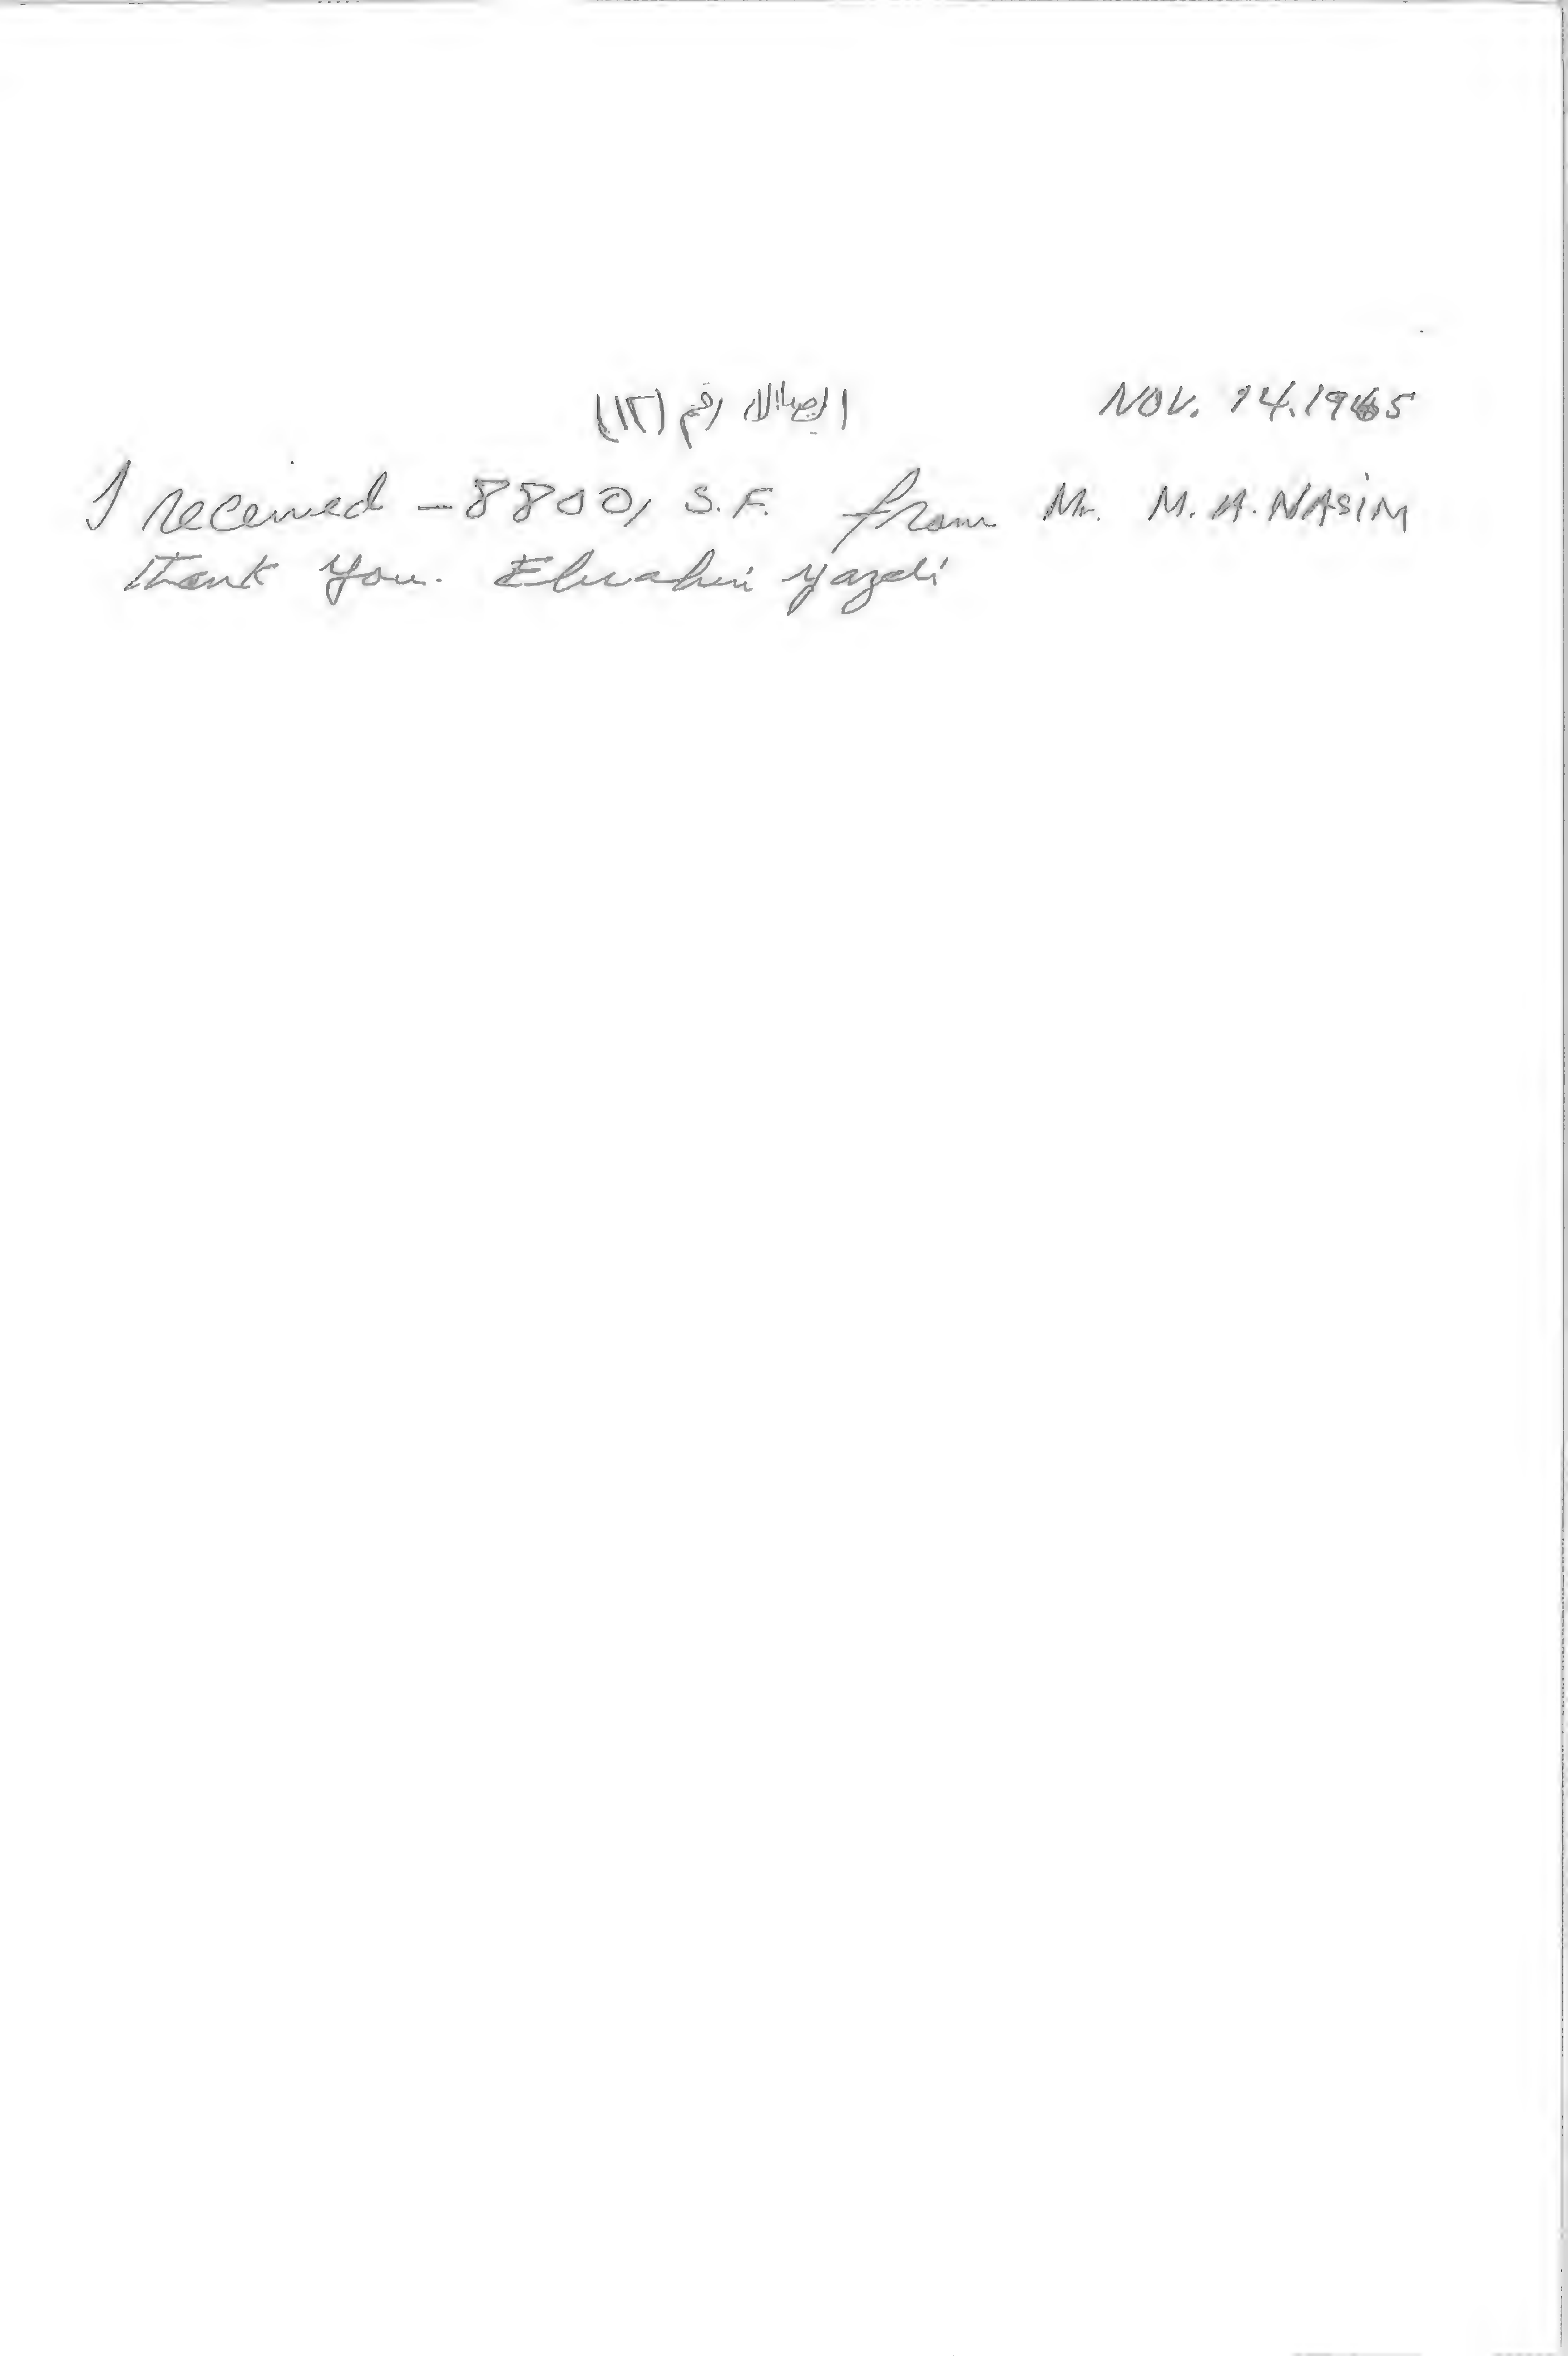 ايصال رقم (١٢) NOV. 14.1965
I received - 8800, S.F. from Mr. M. A. NASiM
thank you. Ebrahim yazdi